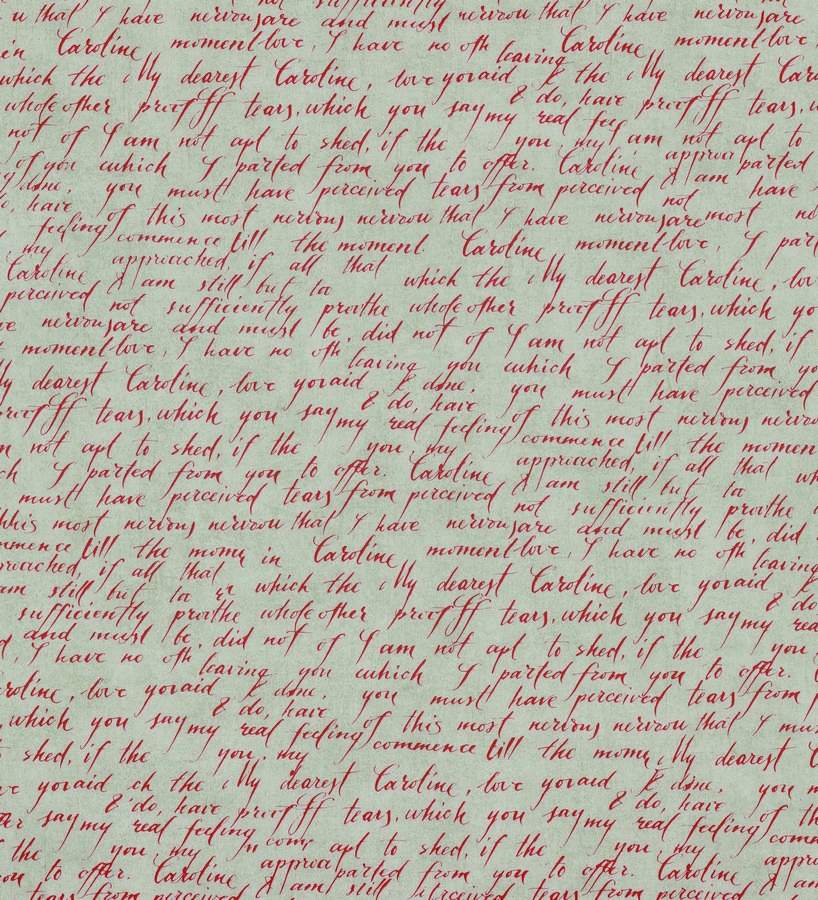 not sufficiently
u that I have nervousare and must nervrow that I have nervousare
in Caroline moment-love, I have no oth leaving Caroline moment-love,
which the My dearest Caroline, love yoraid & the My dearest Caro
whole other prooff tears, which you say & do, have prooff tears, w
my real feel
not of I am not apt to shed, if the you, my am not apt to
of you which I parted from you to offer. Caroline approa parted
done, you must have perceived tears from perceived & am have
o, have not
feeling of this most nervous nervrow that I have nervousare most
my commence till the moment Caroline moment-love, I part
Caroline approached, if all that which the My dearest Caroline, lov
perceived & am still but to
not sufficiently provthe whole other prooff tears, which yo
ve nervousare and must be, did not of I am not apt to shed, if
moment-love, I have no oth leaving you which I parted from yo
My dearest Caroline, love yoraid & done, you must have perceived
prooff tears, which you say & do, have
my real feeling of this most nervous nervrow
m not apt to shed, if the you, my commence till the momen
ch I parted from you to offer. Caroline approached, if all that wh
must have perceived tears from perceived & am still but to
not sufficiently provthe
this most nervous nervrow that I have nervousare and must be, did
mmence till the mome in Caroline moment-love, I have no oth leaving
roached, if all that which the My dearest Caroline, love yoraid &
am still but to & do
sufficiently provthe whole other prooff tears, which you say my rea
and must be, did not of I am not apt to shed, if the you
, I have no oth leaving you which I parted from you to offer.
aroline, love yoraid & done, you must have perceived tears from
, which you say & do, have
my real feeling of this most nervous nervrow that I mus
shed, if the you, my commence till the mome My dearest C
ve yoraid ch the My dearest Caroline, love yoraid & done, you m
& do, have prooff tears, which you say & do, have
say my real feeling my real feeling of th
the you, my apt to shed, if the you, my comm
you to offer. Caroline approa parted from you to offer. Caroline appr
tears from perceived & am still perceived tears from perceived & am